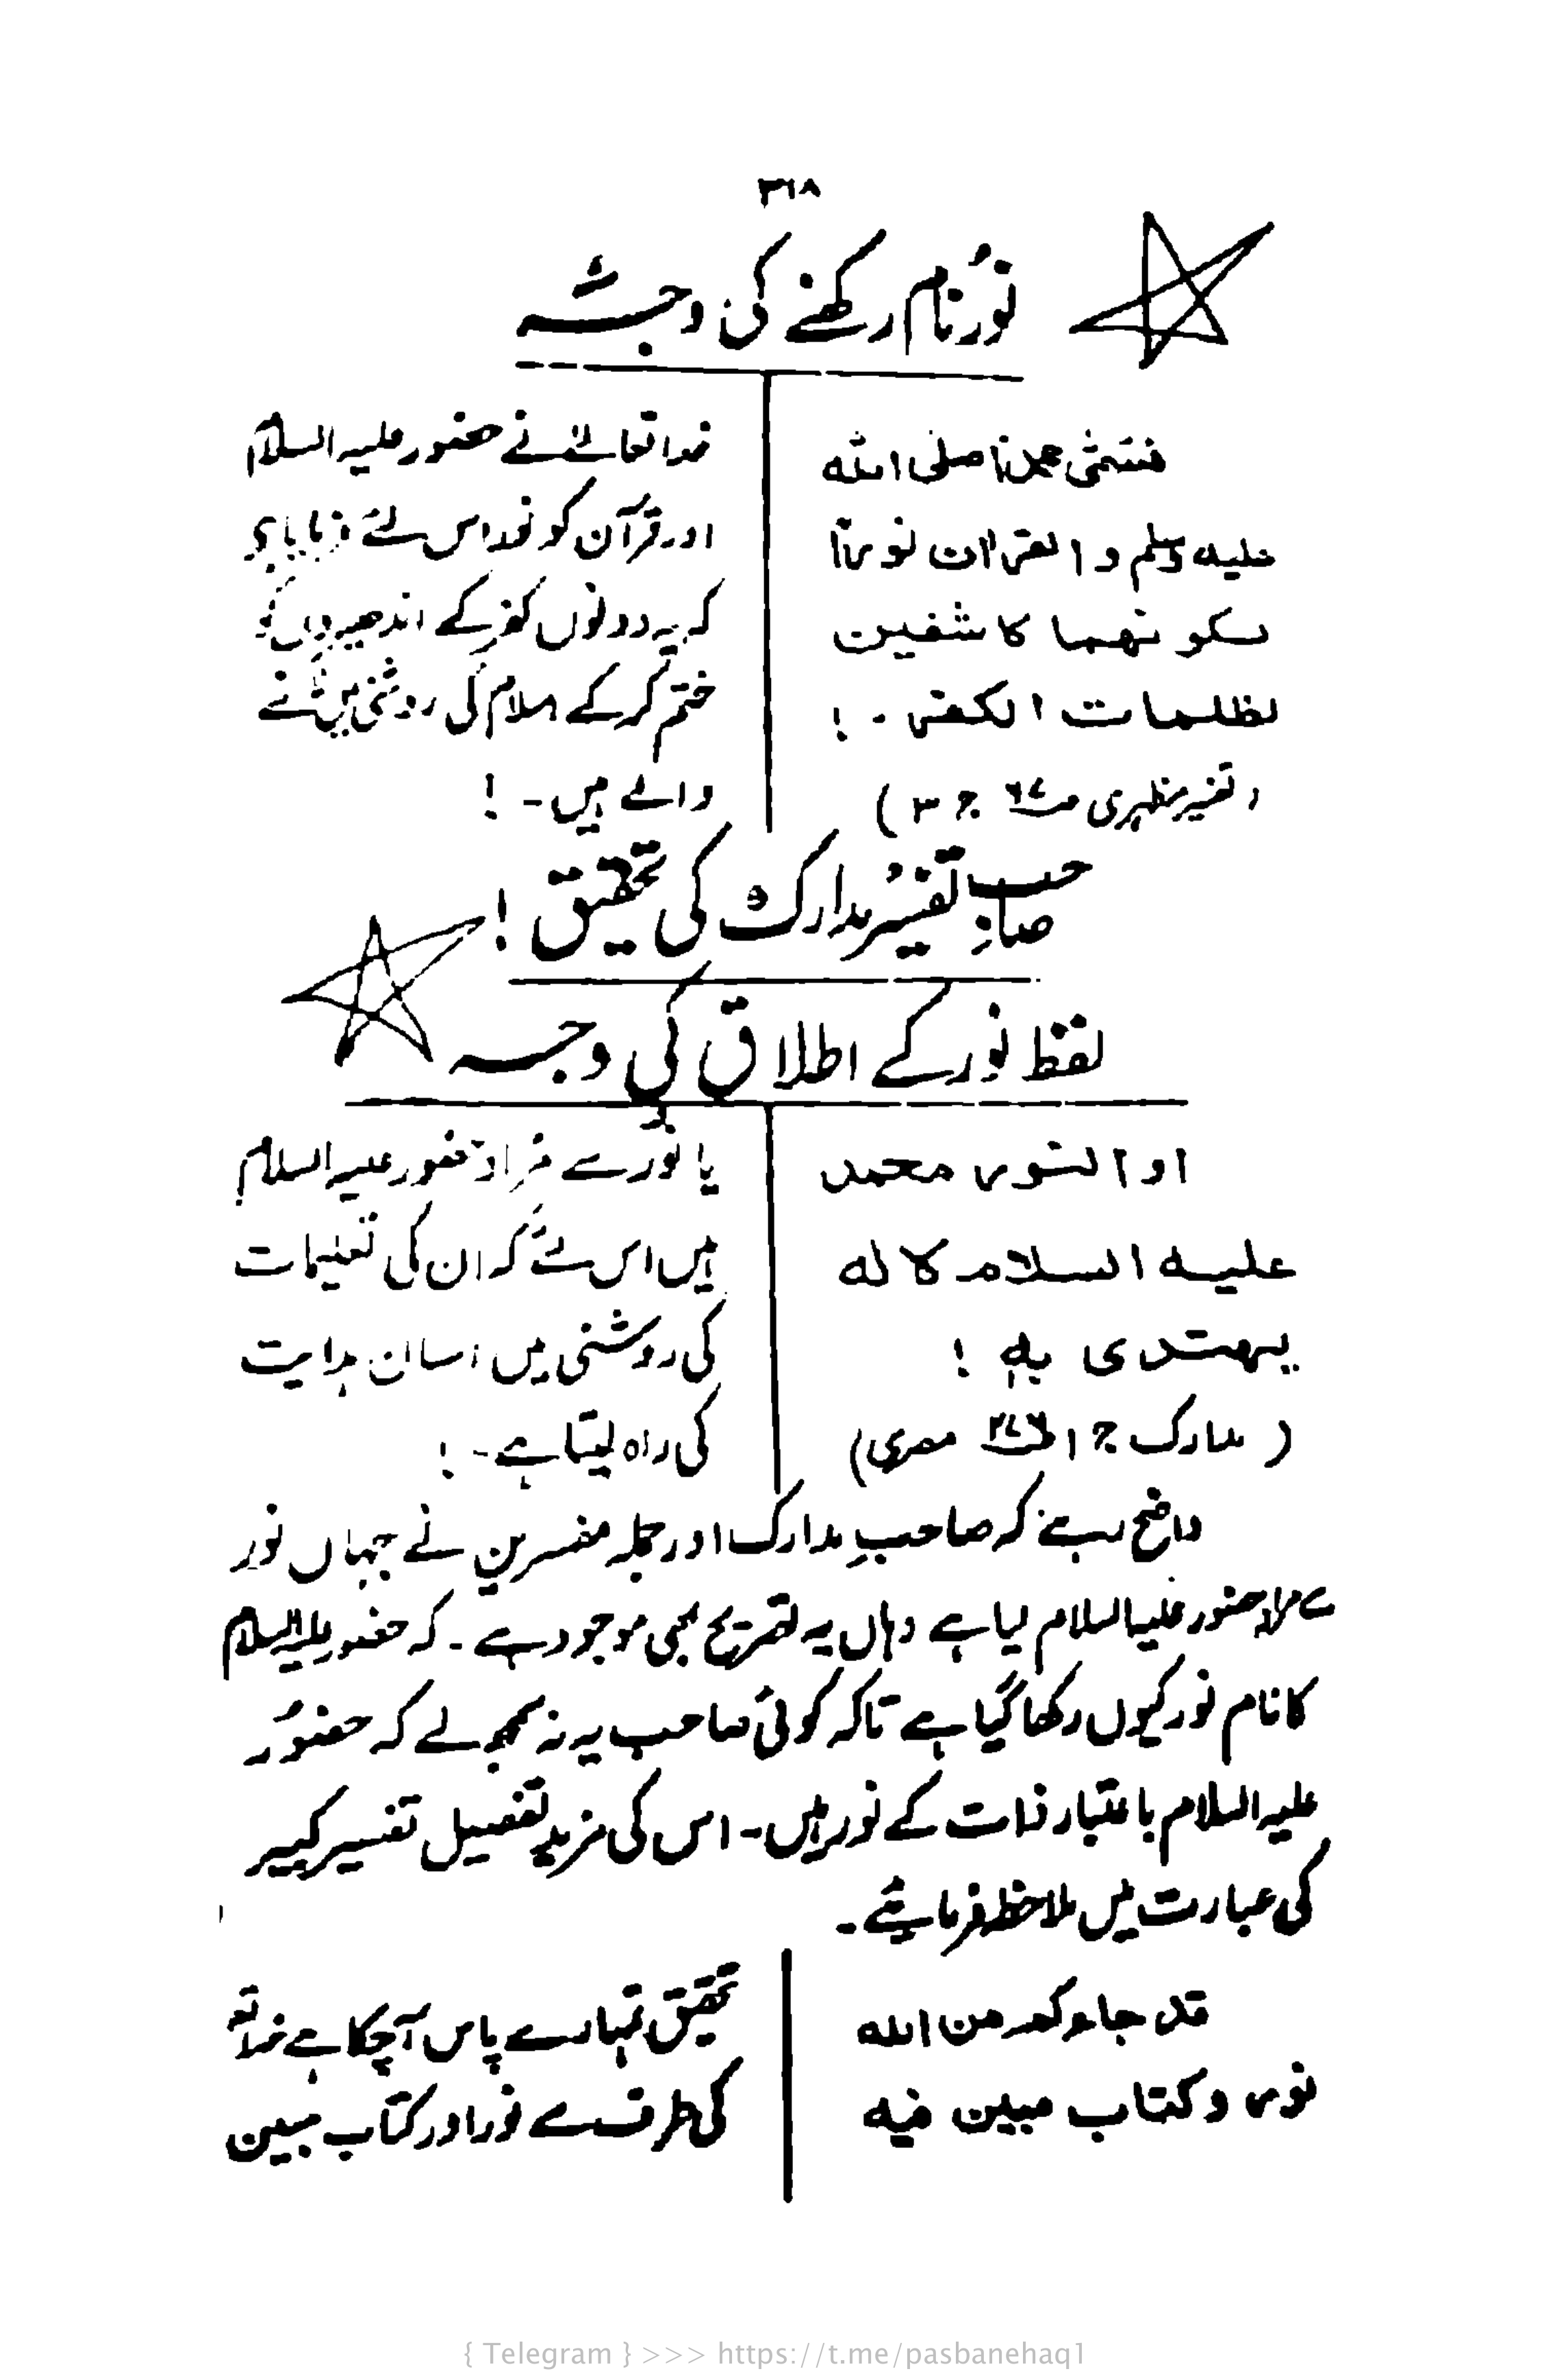 ۳۶۸
نورُ نام رکھنے کی وجہ
فتسمی محمدنا صلی الله
علیه وسلم و القران نورنا
لکونهما کاشفین
لظلمات الکفر ۔ !
(تفسیر مظہری ج ۳)
خدا تعالےٰ نے حضور علیہ السلام
اور قرآن کو نور اس لئے فرمایا ہے
کہ یہ دونوں کفر کے اندھیروں کو
ختم کر کے اسلام کی روشنی
والے ہیں ۔ !
صاحبِ تفسیر مدارک کی تحقیق !
لفظ نور کے اطلاق کی وجہ
او النور محمد
علیه السلام لانه
یهتدی به !
( مدارک ج ۱ مصری)
یا نور سے مراد حضور علیہ السلام
ہیں اس لئے کہ ان کی تعلیمات
کی روشنی میں انسان ہدایت
کی راہ لیتا ہے ۔ !
واضح رہے کہ صاحبِ مدارک اور جملہ مفسرین نے جہاں نور
سے مراد حضور علیہ السلام لیا ہے وہاں یہ تصریح بھی موجود ہے ۔ کہ حضور علیہ السلام
کا نام نور کیوں رکھا گیا ہے تاکہ کوئی صاحب یہ نہ سمجھ لے کہ حضورُ
علیہ السلام باعتبار ذات کے نور ہیں ۔ اس کی مزید تفصیل تفسیر کبیر
کی عبارت میں ملاحظہ فرمایئے ۔
قد جاءکم من الله
نور و کتاب مبین فیه
تحقیق تمہارے پاس آچکا ہے خدا
کی طرف سے نور اور کتاب مبین
{ Telegram } >>> https://t.me/pasbanehaq1